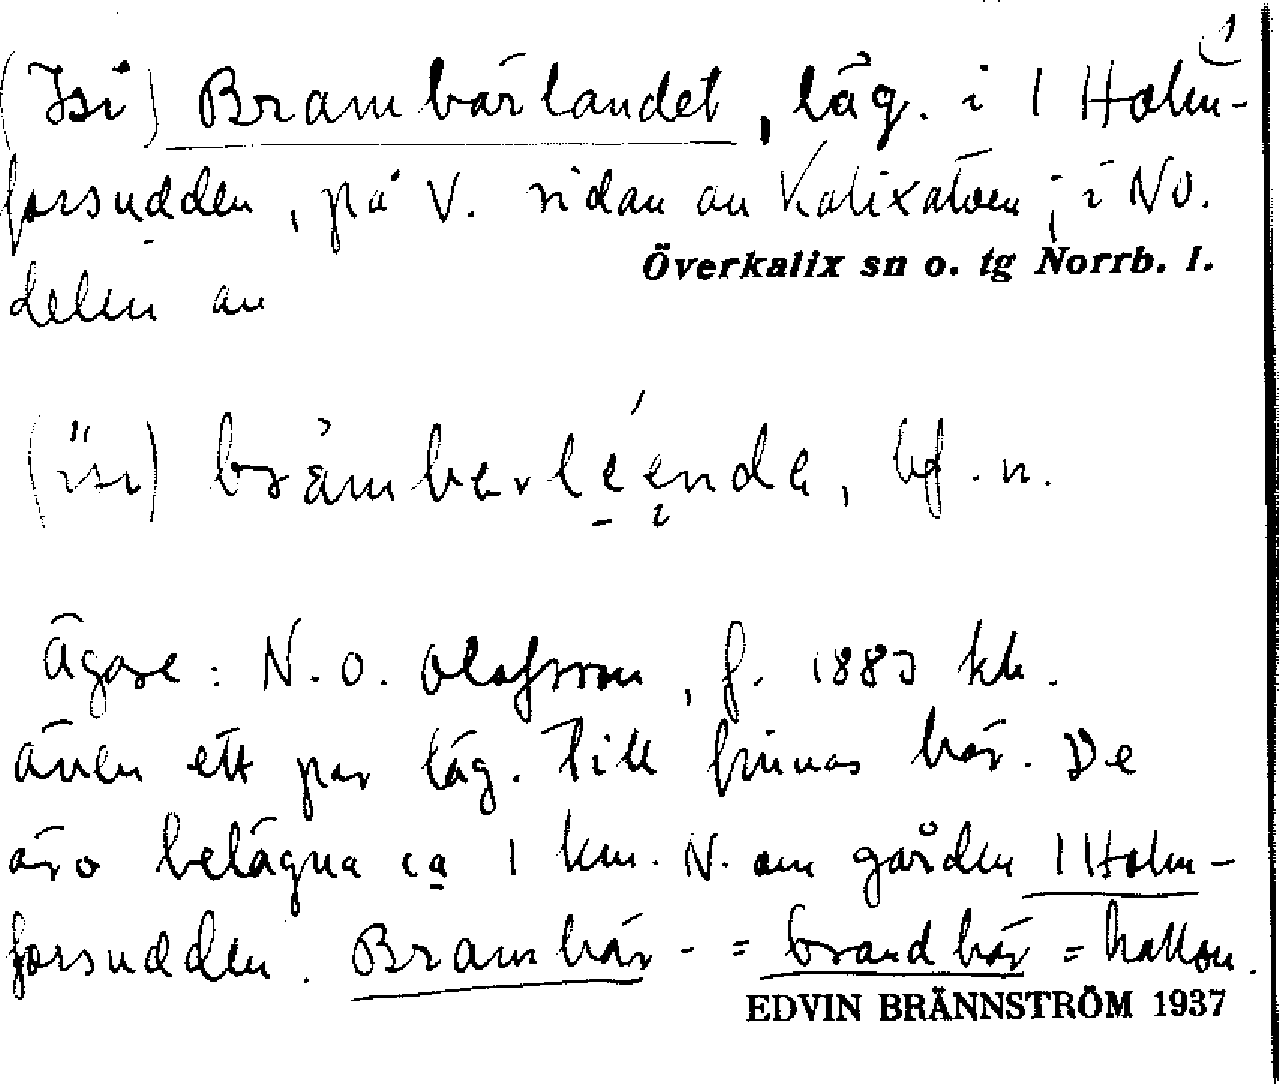 1
(Isi) Brambärlandet, läg. i 1 Holm-
forsudden, på V. sidan av Kalixälven; i NO.
Överkalix sn o. tg Norrb. l.
delen av
bf. n.
Ägare: N. O. Olofsson, f. 1883 här.
även ett par läg. till finnas här. De
äro belägna ca 1 km. N. om gården 1 Holm-
forsudden. Brambär- = brandbär = hallon.
EDVIN BRÄNNSTRÖM 1937